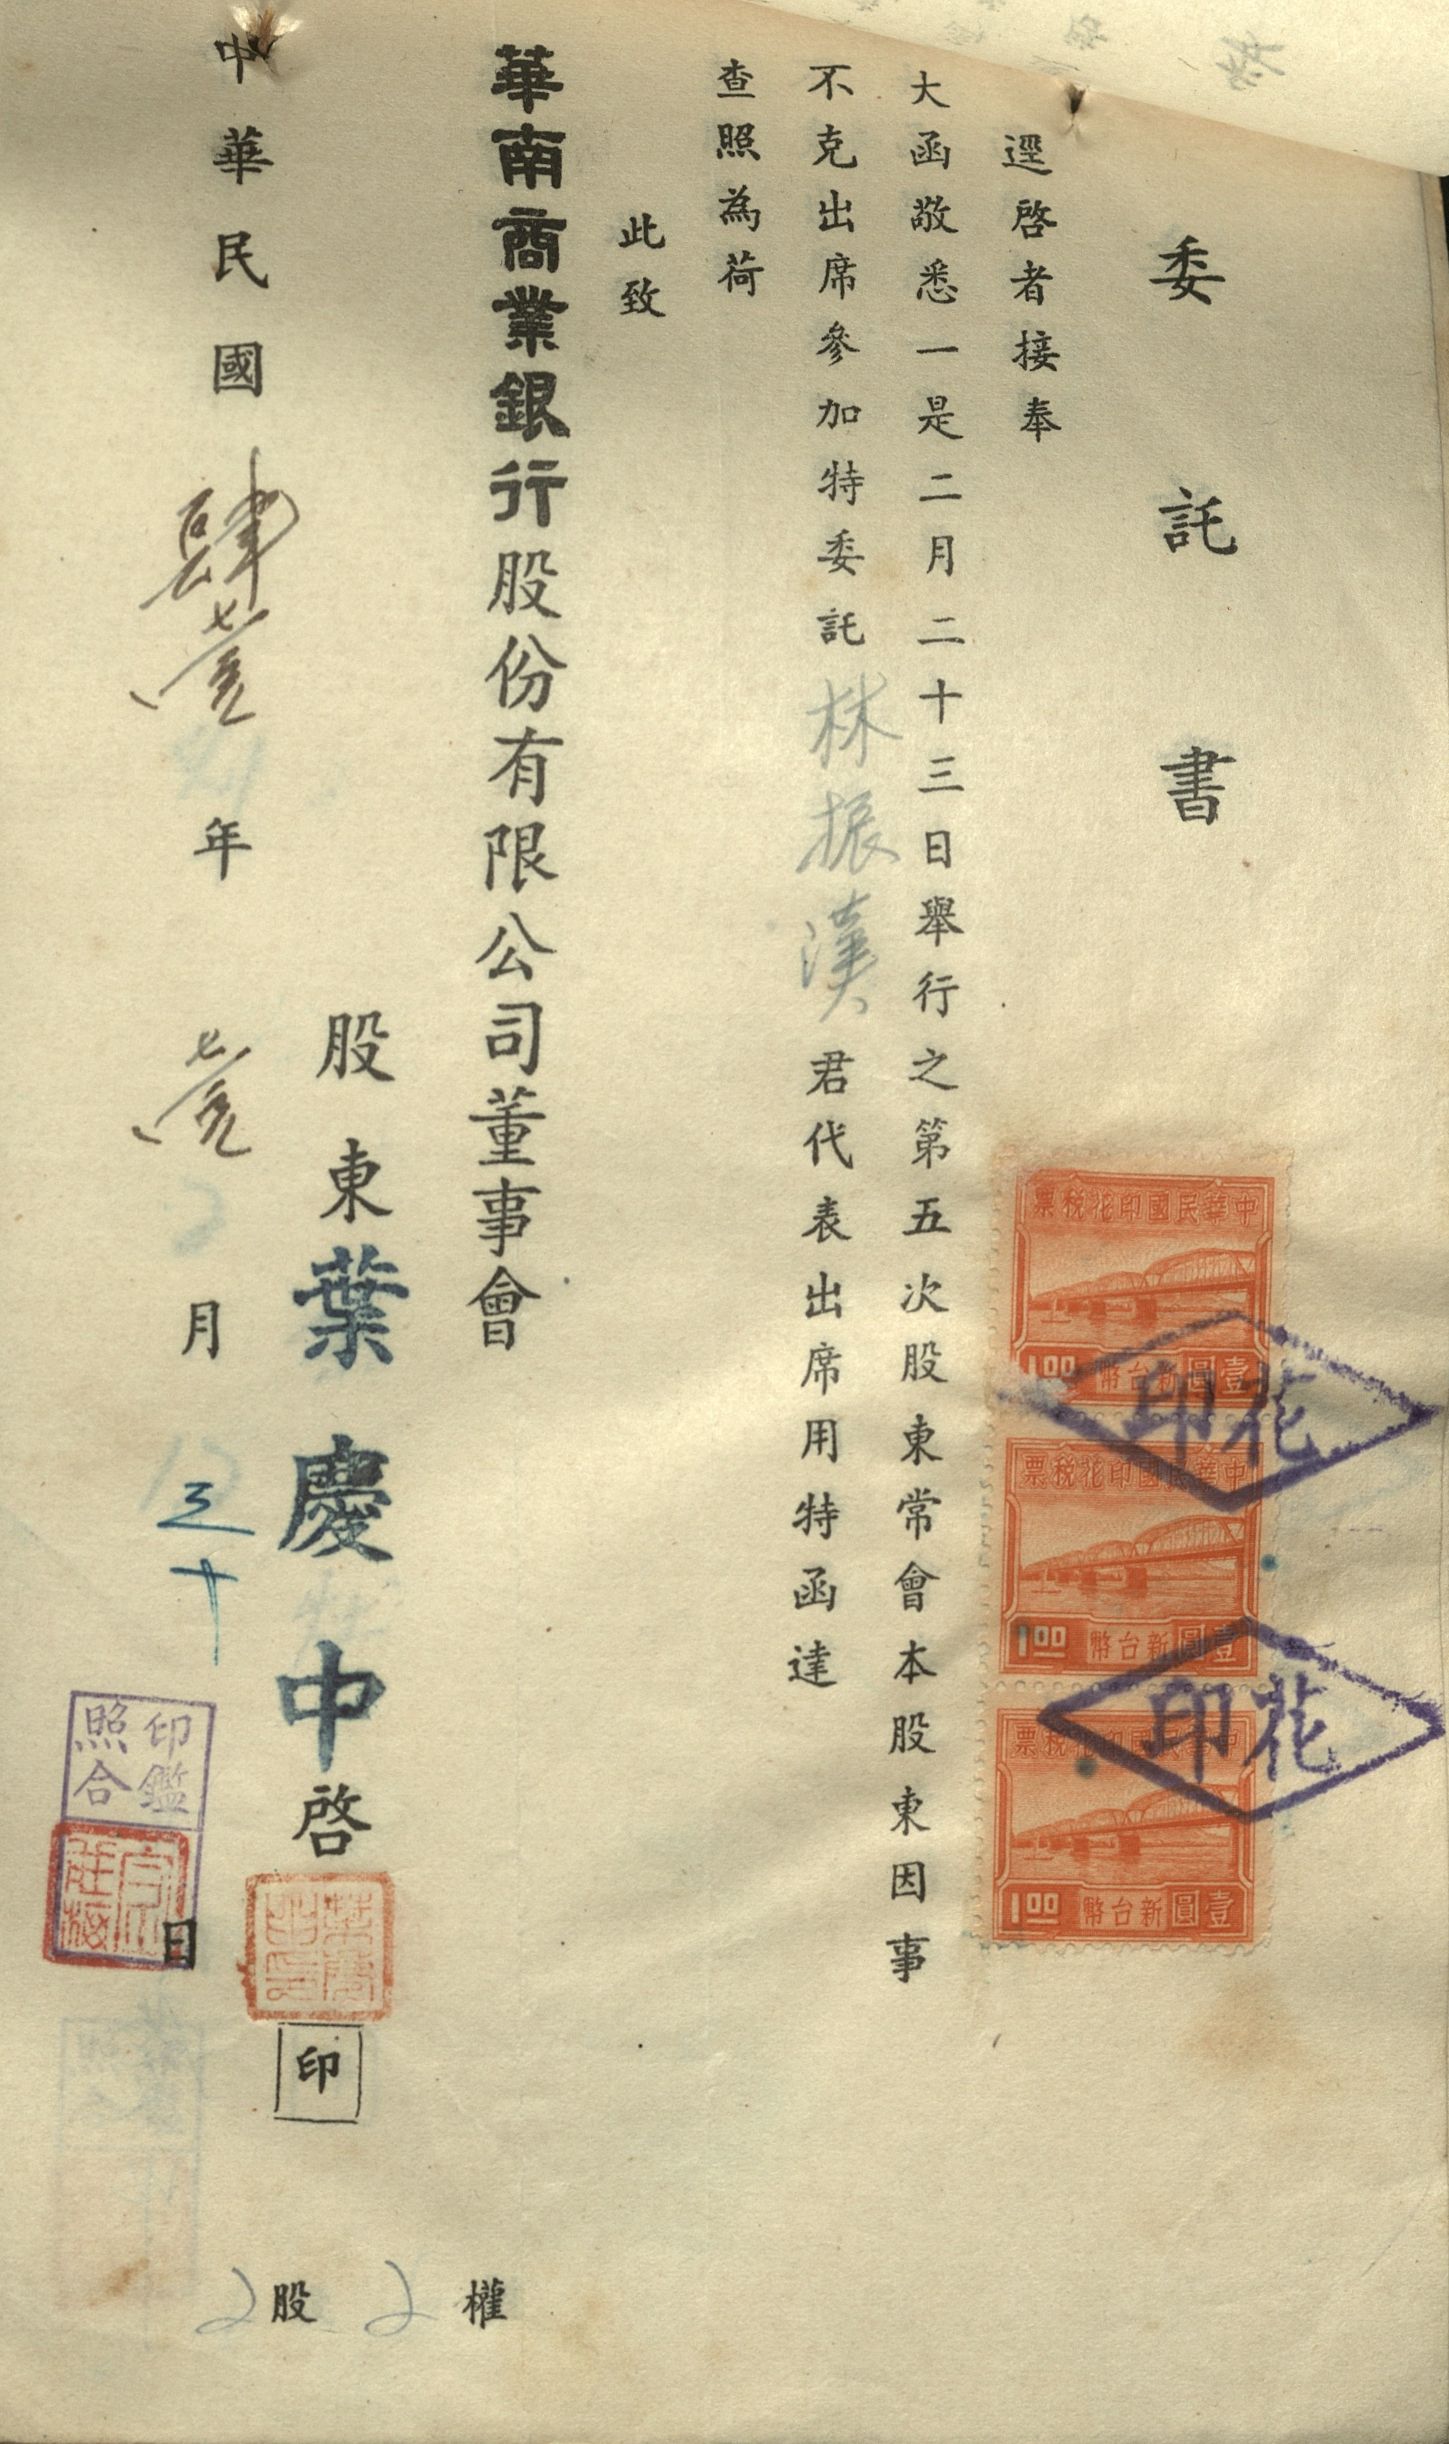 委託書
逕啓者接奉
大函敬悉一是二月二十三日舉行之第五次股東常會本股東因事
不克出席參加特委託林振漢君代表出席用特函達
查照為荷
此致
華南商業銀行股份有限公司董事會
股東葉慶中啓
印
中華民國肆壹年壹月三十日
印鑑
照合
2股2權
中華民國印花稅票
壹圓新台幣1.00
中華民國印花稅票
壹圓新台幣1.00
中華民國印花稅票
壹圓新台幣1.00
花印
花印